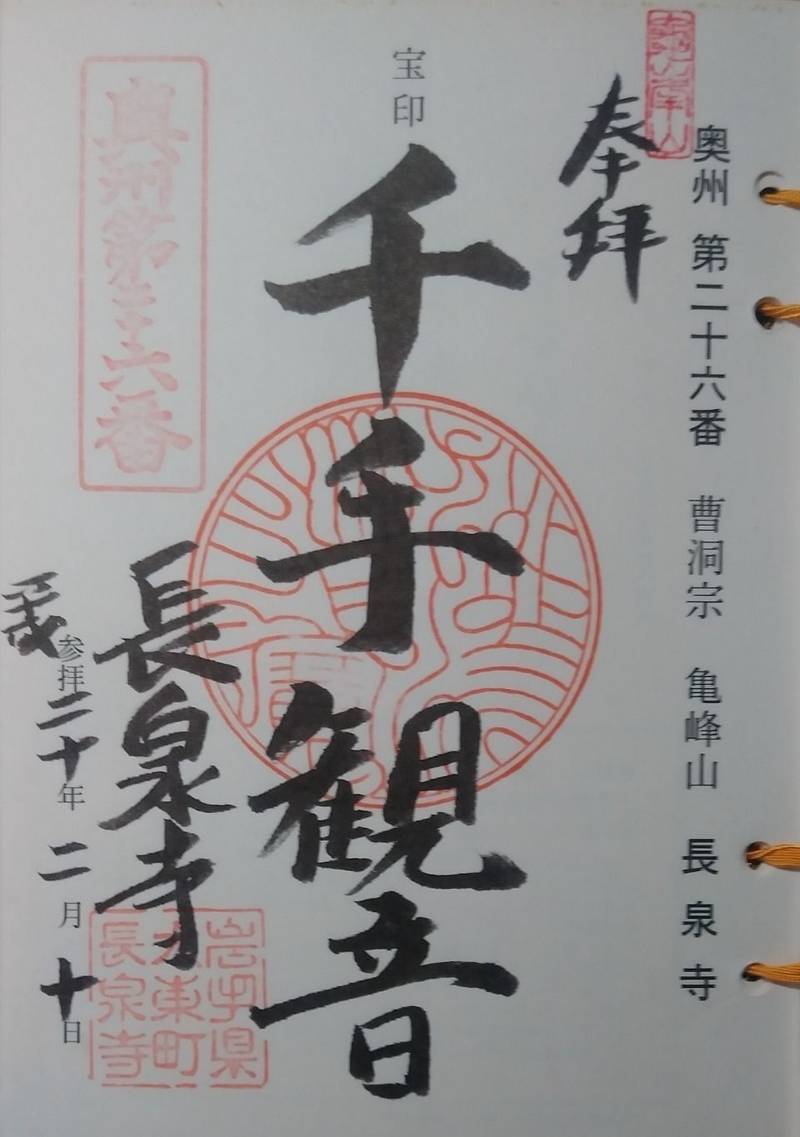 奥州 第二十六番 曹洞宗 亀峰山 長泉寺
奉拝
宝印
千手観音
奥州第二十六番
長泉寺
岩手県
大東町
長泉寺
参拝二十年二月十日